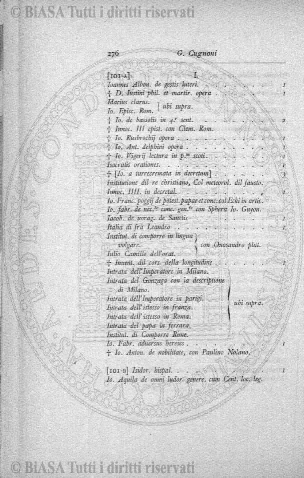 © BIASA Tutti i diritti riservati
276 G. Cugnoni
[101-2] I.
Ioannes Albin. de gestis lateri. . . . 1
‡ D. Iustini phil. et martir. opera . . . 1
Marius clarus. } ubi supra.
Io. Epicc. Rom.
‡ Io. de bassolis in 4.ᵒ sent. . . . 2
‡ Innoc. III epist. con Clem. Rom.
‡ Io. Rusbrochij opera . . . 1
‡ Io. Ant. delphini opera . . . 1
‡ Io. Vigerij lectura in p.ᵐ sent. . . . 1
Isocratis orationes. . . . 1
‡ [Io. a turrecremata in decretum] . . . 3
Institutione dil re christiano, Col metorid. dil fausto.
Innoc. IIII. in decretal. . . . 1
Io. Franc. poggij de potest. papae et conc. col Echi in oriis.
Io. fabr. de conc. gen. con Sphera Io. Gugon.
Iacob. de vorag. de Sanctis.
Italia di fra Leandro . . . 1
Institut. di comporre in lingua } con Onosandro plat.
vulgare.
Iulio Camillo dell'orat.
‡ Invent. dil cors. della longitudine . . . 1
Intrata dell'Imperatore in Milano.
Intrata del Gonzaga con la descriptione
di Milano.
Intrata dell'Imperatore in parigi. } ubi supra.
Intrata dell'istesso in franza.
Intrata dell'istesso in Roma.
Intrata del papa in ferrara.
Institut. di Comporre Rom.
Io. Fabr. adversus hereses . . . 1
‡ Io. Anton. de nobilitate, con Paulino Nolano,
[101-v] Isidor. hispal. . . . 1
Io. Aquila de omni ludor. genere, cum Cent. loc. leg.
© BIASA Tutti i diritti riservati